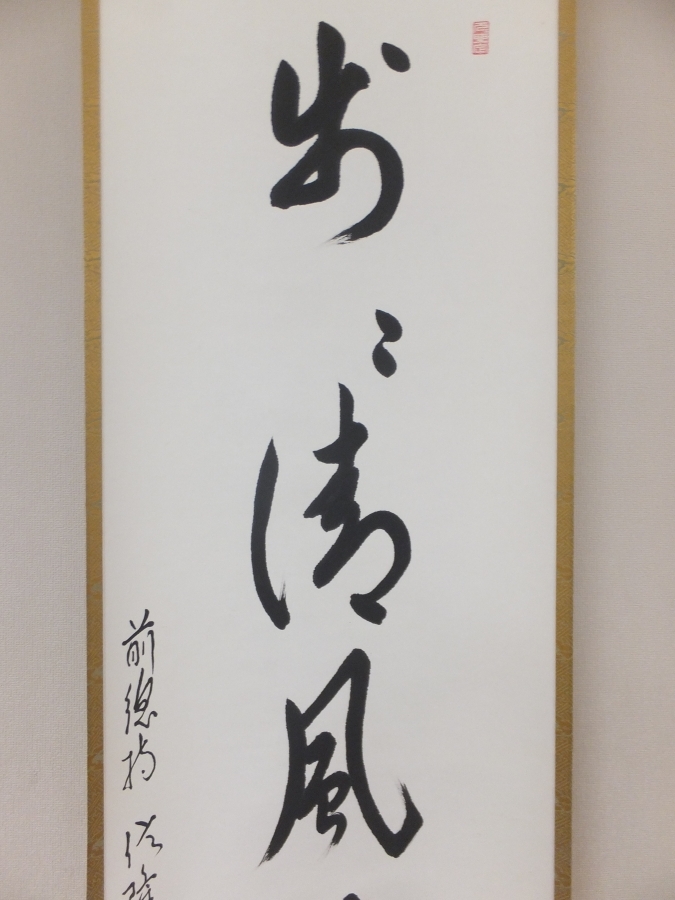 歩々清風
前總持